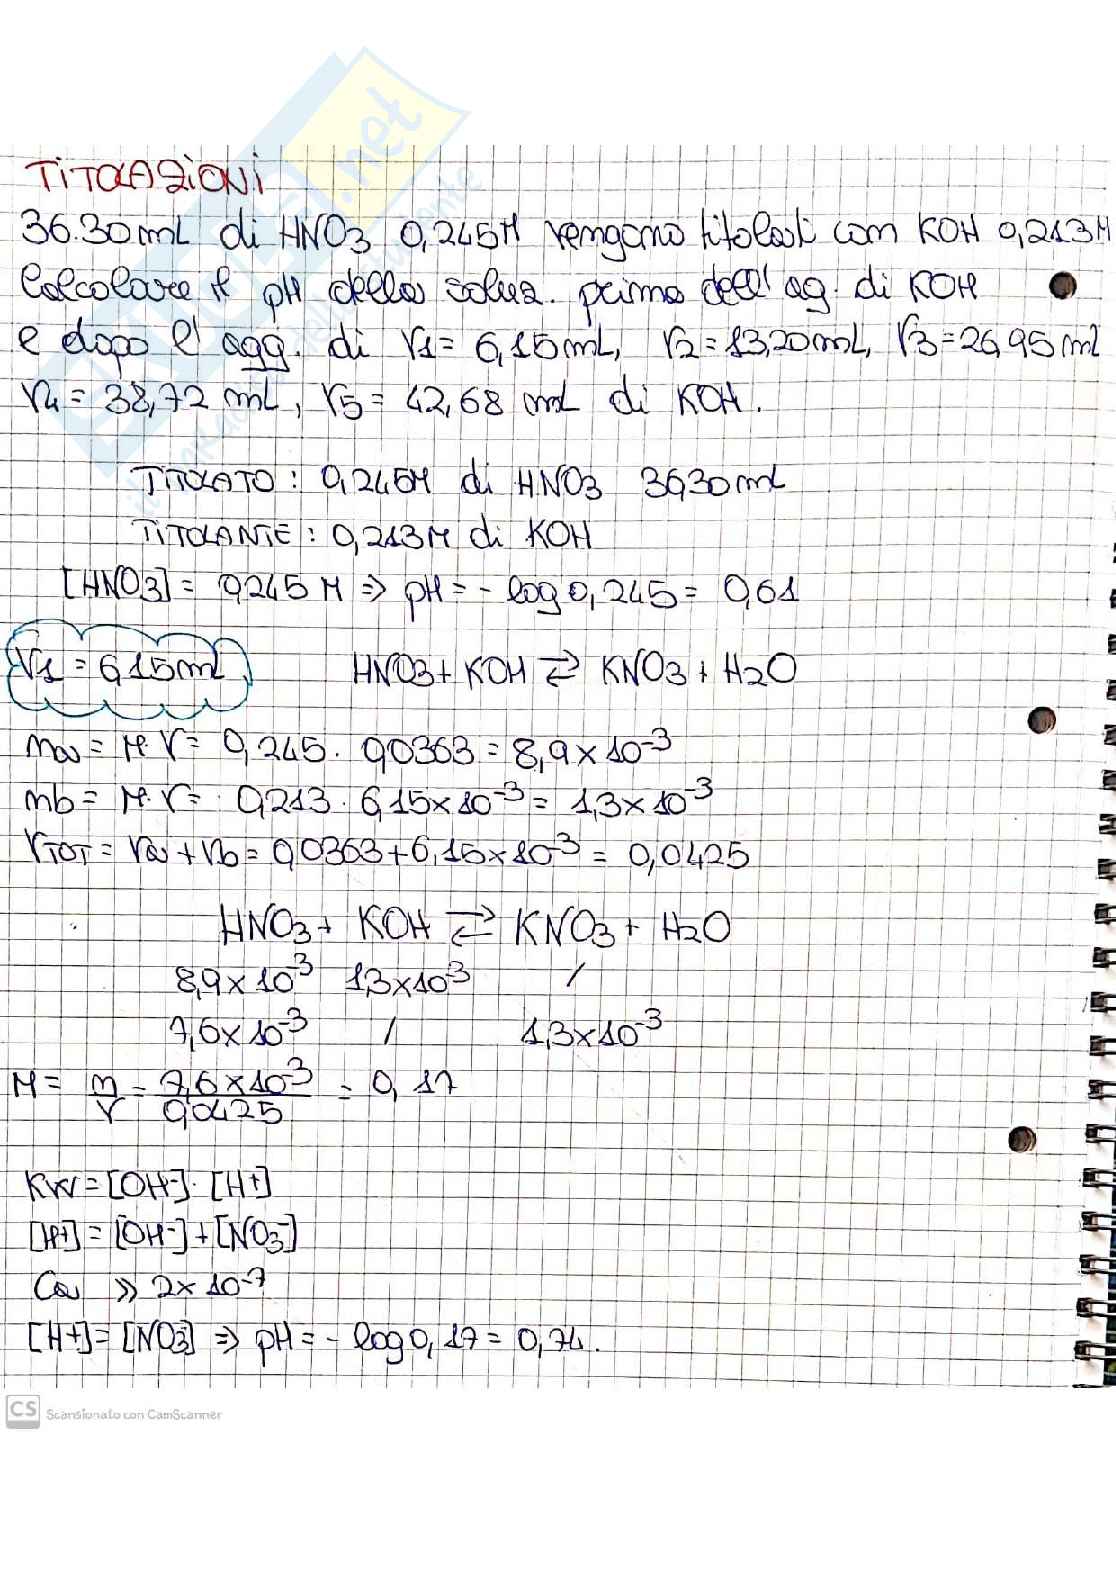 TITOLAZIONI
36.30 mL di HNO3 0,245M vengono titolati con KOH 0,213M
Calcolare il pH della soluz. prima dell'ag. di KOH
e dopo l'agg. di V1 = 6,15 mL, V2 = 13,20 mL, V3 = 26,95 ml
V4 = 38,72 mL, V5 = 42,68 mL di KOH.
TITOLATO : 0,245M di HNO3 36,30 mL
TITOLANTE : 0,213M di KOH
[HNO3] = 0,245 M ⇒ pH = - log 0,245 = 0,61
V1 = 6,15 mL
HNO3 + KOH ⇄ KNO3 + H2O
na = M·V = 0,245 · 0,0363 = 8,9 × 10⁻³
nb = M·V = 0,213 · 6,15 × 10⁻³ = 1,3 × 10⁻³
VTOT = Va + Vb = 0,0363 + 6,15 × 10⁻³ = 0,0425
HNO3 + KOH ⇄ KNO3 + H2O
8,9 × 10⁻³ 1,3 × 10⁻³ /
7,6 × 10⁻³ / 1,3 × 10⁻³
M = n/V = 7,6 × 10⁻³/0,0425 = 0,17
KW = [OH⁻]·[H+]
[H+] = [OH⁻] + [NO3⁻]
Ca >> 2 × 10⁻⁷
[H+] = [NO3⁻] ⇒ pH = - log 0,17 = 0,74.
CS Scansionato con CamScanner